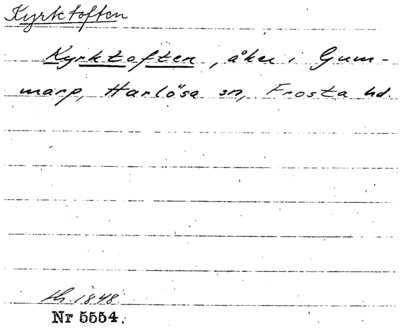 Kyrktoften
Kyrktoften, åker i Gum-
marp, Harlösa sn, Frosta hd.
1848.
Nr 5554.